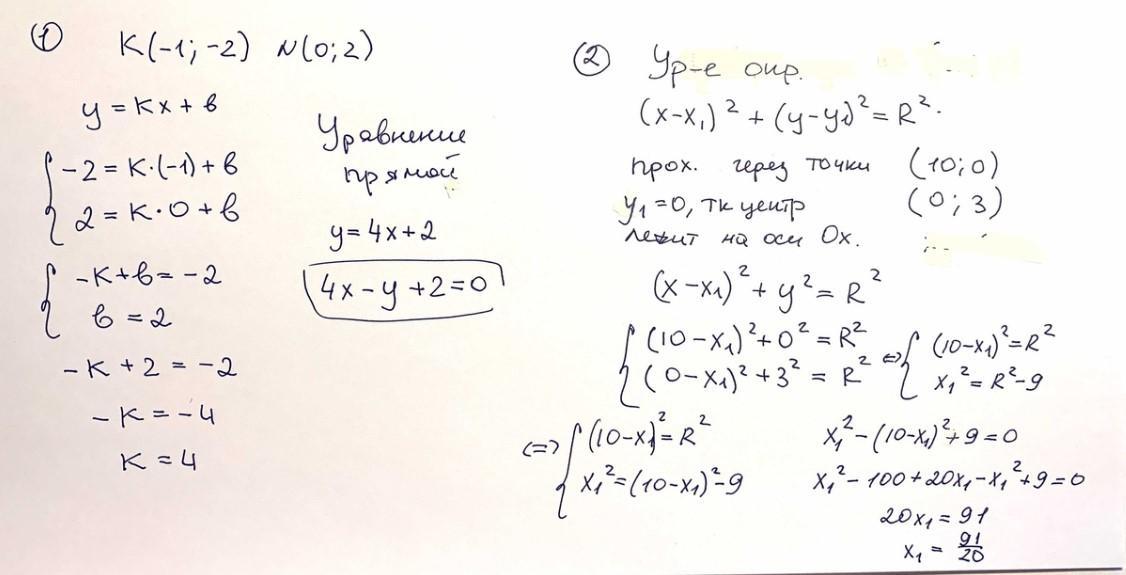 ① K(-1; -2) N(0; 2)
y = Kx + в
{ -2 = K·(-1) + в
2 = K·0 + в
{ -K + в = -2
в = 2
-K + 2 = -2
-K = -4
K = 4
Уравнение
прямой
y = 4x + 2
4x - y + 2 = 0
② Ур-е окр.
(x-x₁)² + (y-y₁)² = R².
прох. через точки (10; 0)
y₁ = 0, тк центр (0; 3)
лежит на оси Ox.
(x-x₁)² + y² = R²
{ (10-x₁)² + 0² = R² ⇔ { (10-x₁)² = R²
(0-x₁)² + 3² = R² x₁² = R² - 9
⇔ { (10-x)² = R²
x₁² = (10-x₁)² - 9
x₁² - (10-x₁)² + 9 = 0
x₁² - 100 + 20x₁ - x₁² + 9 = 0
20x₁ = 91
x₁ = 91/20